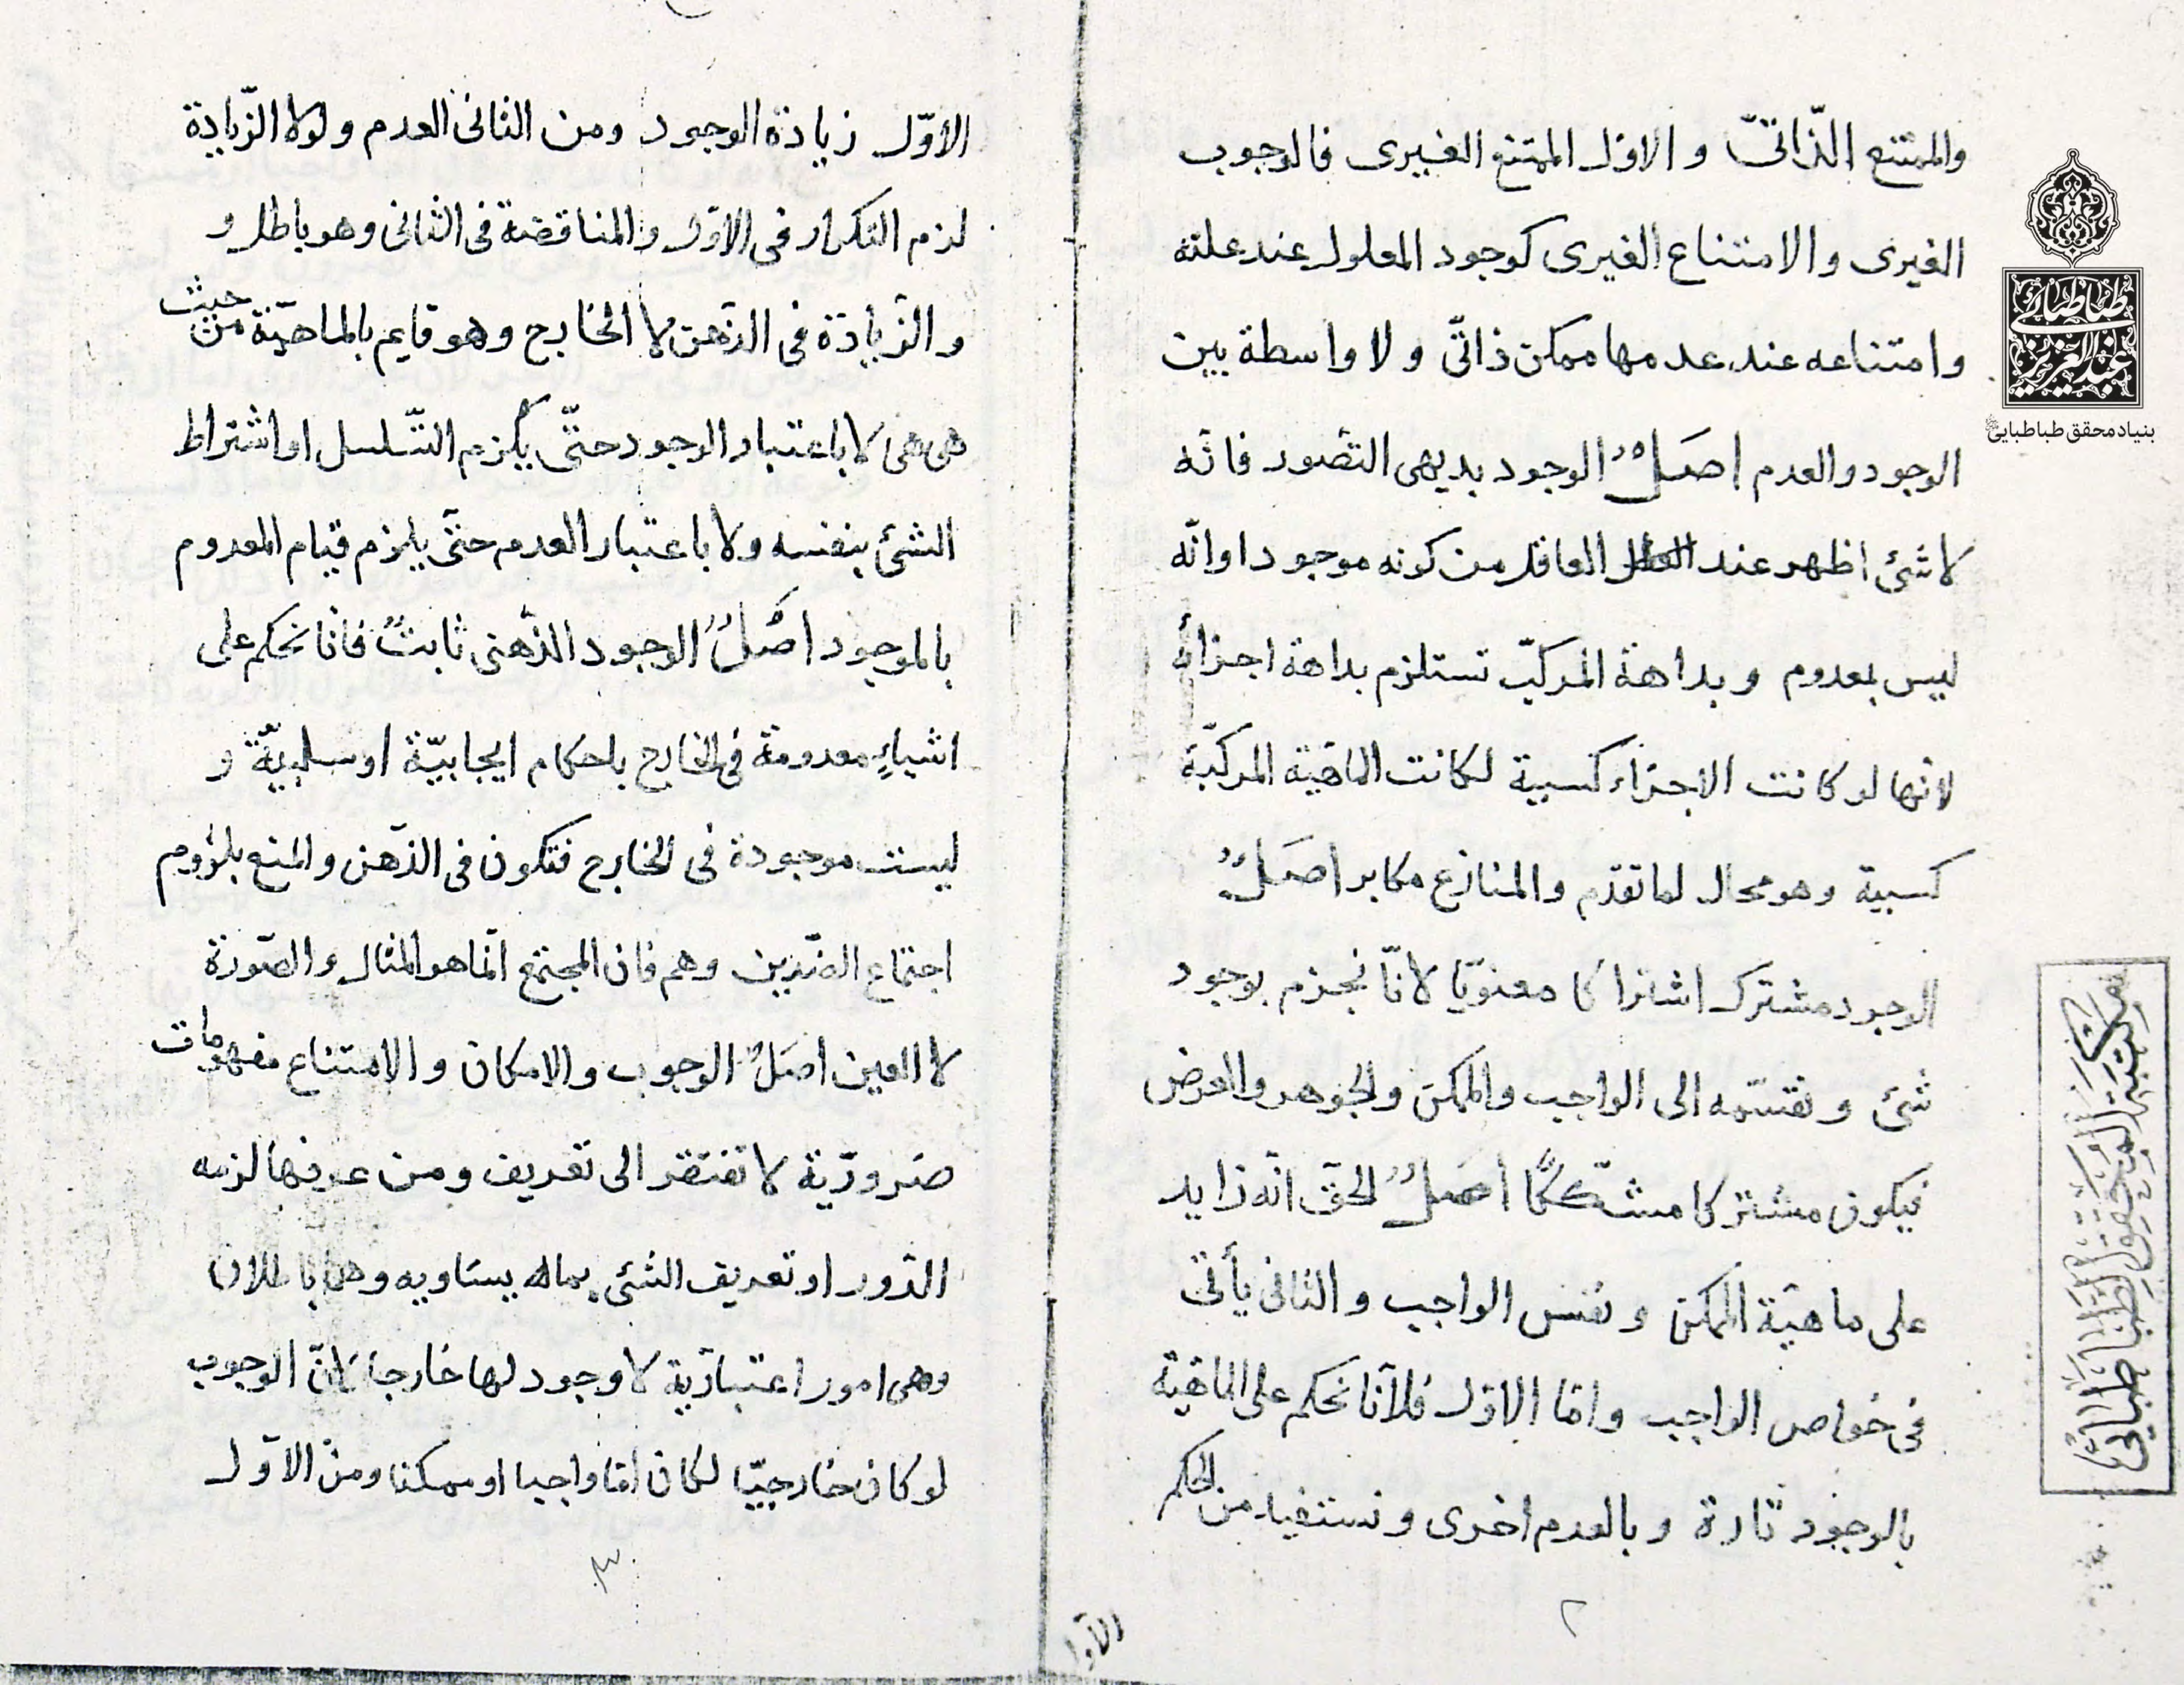 والممتنع الذّاتىّ و الاوّل الممتنع الغيرى فالوجوب
الغيرى و الامتناع الغيرى كوجود المعلول عند علته
وامتناعه عند عدمها ممكن ذاتىّ و لا واسطة بين
الوجود والعدم اصَلٌ الوجود بديهى التصّور فانّه
لاشئ اظهر عند العاقل من كونه موجودا وانّه
ليس بمعدوم و بداهة المركبّ تستلزم بداهة اجزائه
لانّها لو كانت الاجزاء كسبية لكانت الماهّية المركبّة
كسبية وهو محال لما تقدّم والمنازع مكابر اصَلٌ
الوجود مشترك اشتراكا معنويّا لانّا نجزم بوجود
شئ و نقسّمه الى الواجب والممكن والجوهر والعرض
فيكون مشتركا مشكّكًا اصَلٌ الحقّ انّه زايد
على ماهيّة الممكن و نفس الواجب و الثانى يأتى
فى خواص الواجب وامّا الاوّل فلانّا نحكم على الماهّية
بالوجود تارة و بالعدم اخرى و نستفيد من الحكم
٢
الاوّل زيادة الوجود ومن الثانى العدم ولولا الزّيادة
لزم التكرار فى الاوّل والمناقضة فى الثانى وهو باطل و
و الزّيادة فى الذّهن لا الخارج وهو قايم بالماهيّة من حيث
هى هى لا باعتبار الوجود حتّى يلزم التّسلسل او اشتراط
الشئ بنفسه ولا باعتبار العدم حتّى يلزم قيام المعدوم
بالموجود اصَلٌ الوجود الذّهنى ثابتٌ فانّا نحكم على
اشياءٍ معدومة فى الخارج باحكام ايجابيّة او سلبيّة و
ليست موجودة فى الخارج فتكون فى الذّهن والمنع بلزوم
اجتماع الضّدين وهم فان المجتمع انّما هو المثال و الصّورة
لا العين اصَلٌ الوجوب والامكان و الامتناع مفهومات
ضروريّة لا تفتقر الى تعريف ومن عرفها لزمه
الدّور او تعريف الشئ بماله يساويه وهما باطلان
وهى امور اعتباريّة لا وجود لها خارجا لانّ الوجوب
لو كان خارجيّا لكان امّا واجبا او ممكنا ومن الاوّل
٣
طباطبائى
عبدالعزيز
بنیاد محقق طباطبایی
مكتبة المحقق الطباطبائي